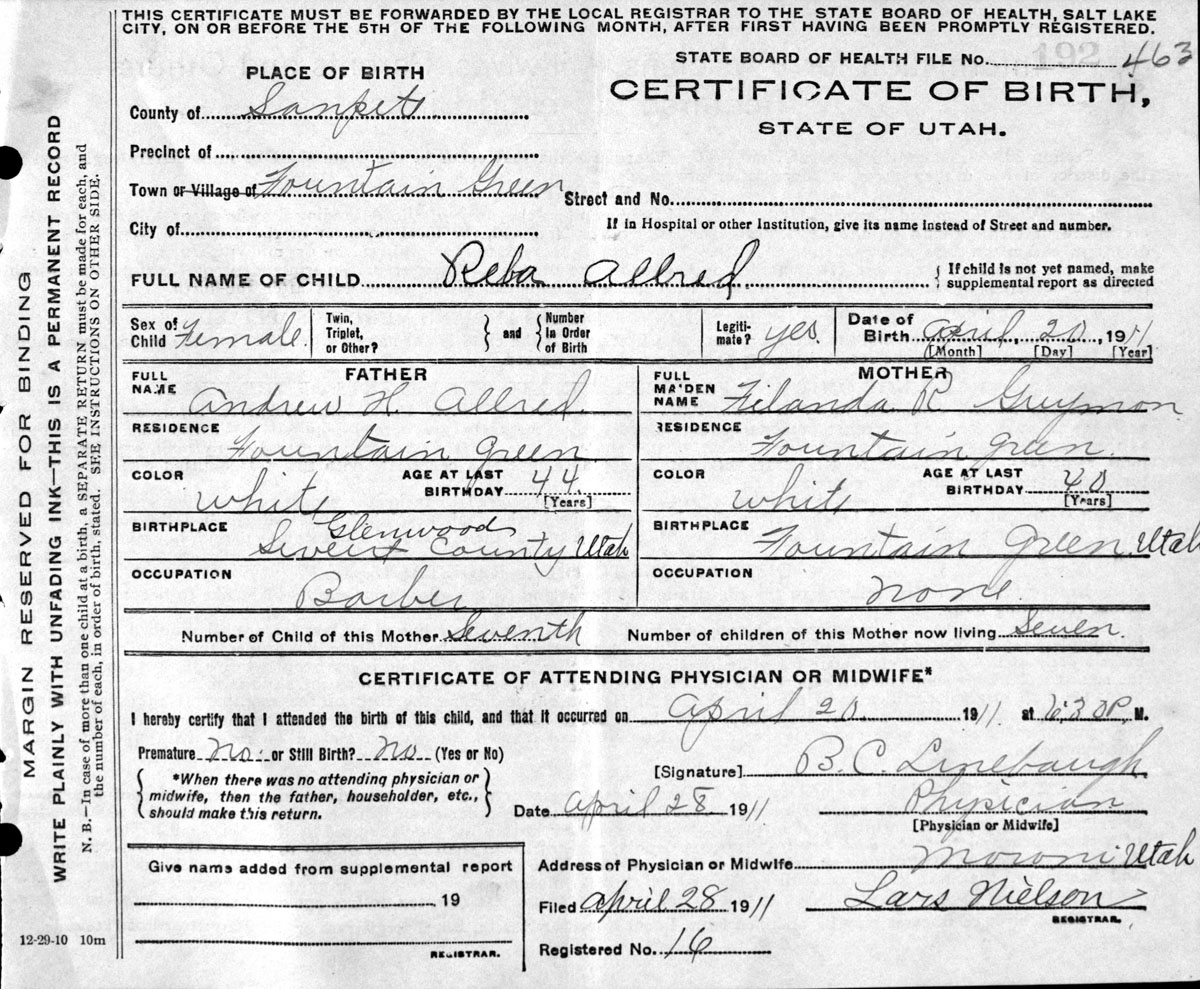 THIS CERTIFICATE MUST BE FORWARDED BY THE LOCAL REGISTRAR TO THE STATE BOARD OF HEALTH, SALT LAKE
CITY, ON OR BEFORE THE 5TH OF THE FOLLOWING MONTH, AFTER FIRST HAVING BEEN PROMPTLY REGISTERED.
MARGIN RESERVED FOR BINDING
WRITE PLAINLY WITH UNFADING INK—THIS IS A PERMANENT RECORD
N. B.—In case of more than one child at a birth, a SEPARATE RETURN must be made for each, and
the number of each, in order of birth, stated. SEE INSTRUCTIONS ON OTHER SIDE.
STATE BOARD OF HEALTH FILE No. 192 463
PLACE OF BIRTH
CERTIFICATE OF BIRTH,
STATE OF UTAH.
County of Sanpete
Precinct of
Town or Village of Fountain Green
Street and No.
City of
If in Hospital or other Institution, give its name instead of Street and number.
FULL NAME OF CHILD Reba Allred
If child is not yet named, make
supplemental report as directed
Sex of Child Female
Twin, Triplet, or Other?
and
Number in Order of Birth
Legitimate? yes
Date of Birth April 20, 1911
[Month] [Day] [Year]
FATHER
FULL NAME Andrew H. Allred
RESIDENCE Fountain Green
COLOR White
AGE AT LAST BIRTHDAY 44
[Years]
BIRTHPLACE Glenwood
Sevier County Utah
OCCUPATION Barber
MOTHER
FULL MAIDEN NAME Filanda R. Guymon
RESIDENCE Fountain Green
COLOR White
AGE AT LAST BIRTHDAY 40
[Years]
BIRTHPLACE Fountain Green Utah
OCCUPATION None.
Number of Child of this Mother Seventh
Number of children of this Mother now living Seven.
CERTIFICATE OF ATTENDING PHYSICIAN OR MIDWIFE*
I hereby certify that I attended the birth of this child, and that it occurred on April 20 1911, at 6:30 P. M.
Premature No. or Still Birth? No (Yes or No)
*When there was no attending physician or
midwife, then the father, householder, etc.,
should make this return.
[Signature] B. C. Linebaugh
Date April 28 1911
Physician
[Physician or Midwife]
Give name added from supplemental report
19
REGISTRAR.
Address of Physician or Midwife Moroni Utah
Filed April 28 1911
Lars Nielson
REGISTRAR.
Registered No. 16
12-29-10 10m